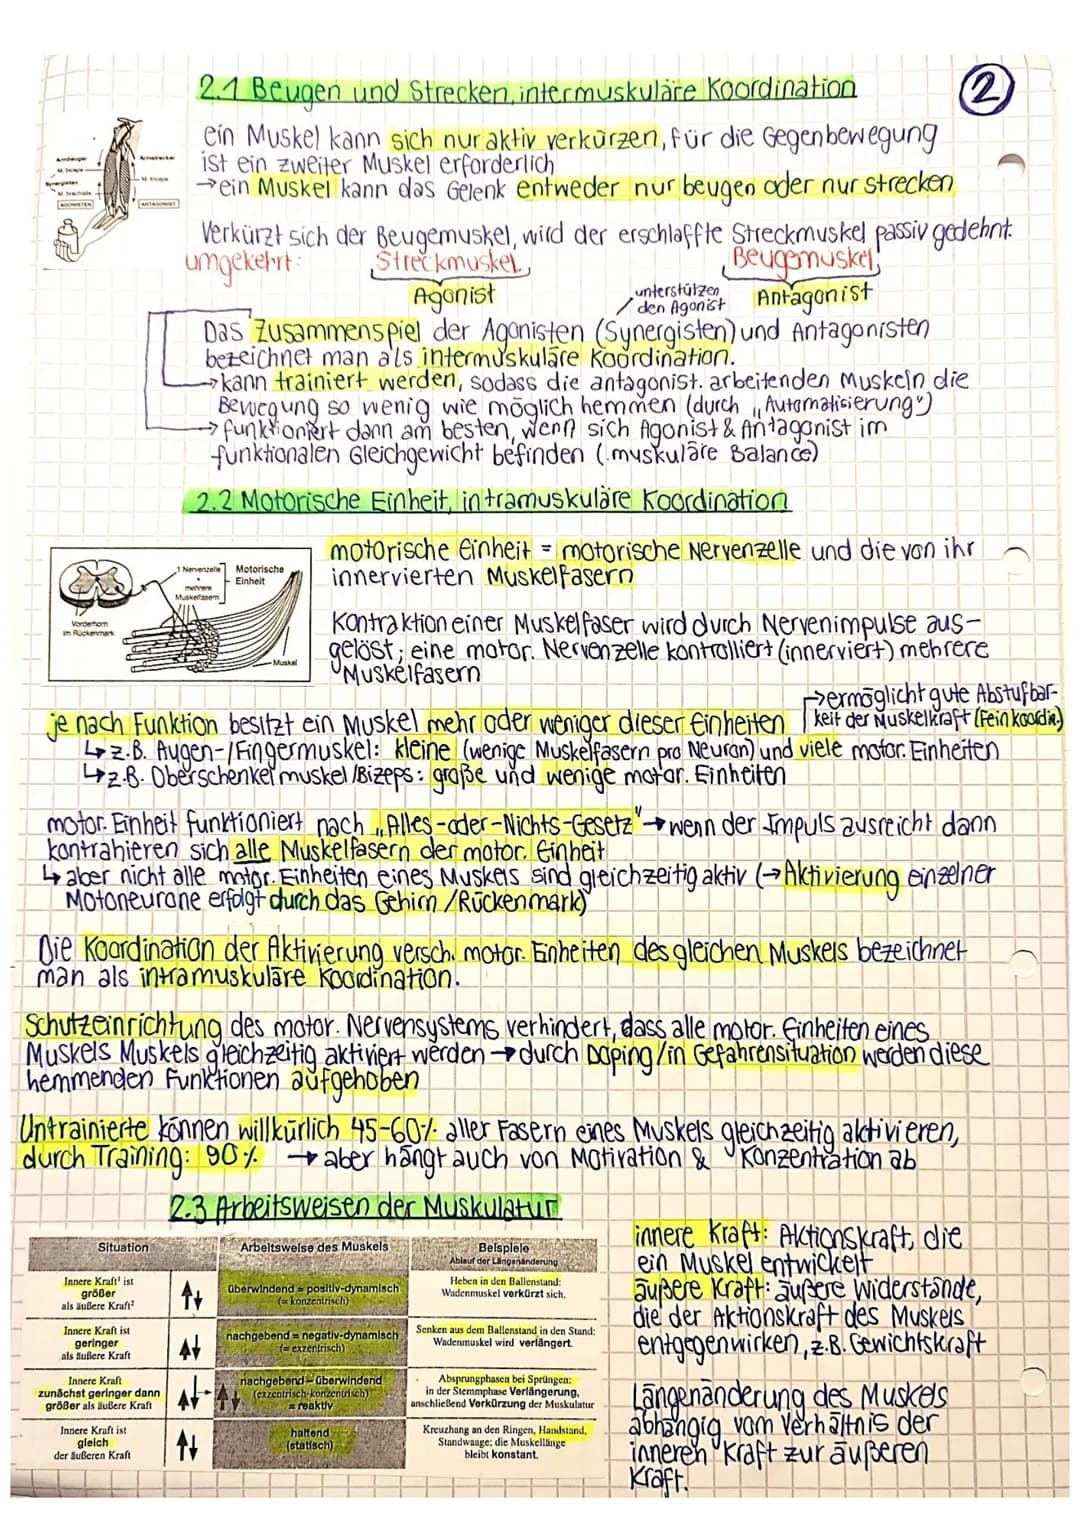 2.1 Beugen und Strecken, intermuskuläre Koordination
2
ein Muskel kann sich nur aktiv verkürzen, für die Gegenbewegung
ist ein zweiter Muskel erforderlich
→ ein Muskel kann das Gelenk entweder nur beugen oder nur strecken
Armbeuger
M. biceps
Synergisten
M. brachialis
AGONISTEN
Armstrecker
M. triceps
ANTAGONIST
Verkürzt sich der Beugemuskel, wird der erschlaffte Streckmuskel passiv gedehnt.
umgekehrt: Streckmuskel Beugemuskel
Agonist unterstützen den Agonist Antagonist
Das Zusammenspiel der Agonisten (Synergisten) und Antagonisten
bezeichnet man als intermuskuläre Koordination.
→ kann trainiert werden, sodass die antagonist. arbeitenden Muskeln die
Bewegung so wenig wie möglich hemmen (durch „Automatisierung")
→ funktioniert dann am besten, wenn sich Agonist & Antagonist im
funktionalen Gleichgewicht befinden (muskuläre Balance)
2.2 Motorische Einheit, intramuskuläre Koordination
1 Nervenzelle
+
mehrere
Muskelfasern
Motorische
Einheit
Vorderhorn
im Rückenmark
Muskel
motorische Einheit = motorische Nervenzelle und die von ihr
innervierten Muskelfasern
Kontraktion einer Muskelfaser wird durch Nervenimpulse aus-
gelöst; eine motor. Nervenzelle kontrolliert (innerviert) mehrere
Muskelfasern
→ ermöglicht gute Abstufbar-
keit der Muskelkraft (Feinkoordin.)
je nach Funktion besitzt ein Muskel mehr oder weniger dieser Einheiten
↳ z.B. Augen-/Fingermuskel: kleine (wenige Muskelfasern pro Neuron) und viele motor. Einheiten
↳ z.B. Oberschenkelmuskel/Bizeps: große und wenige motor. Einheiten
motor. Einheit funktioniert nach „Alles-oder-Nichts-Gesetz" → wenn der Impuls ausreicht dann
kontrahieren sich alle Muskelfasern der motor. Einheit
↳ aber nicht alle motor. Einheiten eines Muskels sind gleichzeitig aktiv (→ Aktivierung einzelner
Motoneurone erfolgt durch das Gehirn/Rückenmark)
Die Koordination der Aktivierung versch. motor. Einheiten des gleichen Muskels bezeichnet
man als intramuskuläre Koordination.
Schutzeinrichtung des motor. Nervensystems verhindert, dass alle motor. Einheiten eines
Muskels Muskels gleichzeitig aktiviert werden → durch Doping/in Gefahrensituation werden diese
hemmenden Funktionen aufgehoben
Untrainierte können willkürlich 45-60% aller Fasern eines Muskels gleichzeitig aktivieren,
durch Training: 90% → aber hängt auch von Motivation & Konzentration ab
2.3 Arbeitsweisen der Muskulatur
Situation Arbeitsweise des Muskels Beispiele
Ablauf der Längenänderung
Innere Kraft¹ ist
größer
als äußere Kraft²
↑↓
überwindend = positiv-dynamisch
(= konzentrisch)
Heben in den Ballenstand:
Wadenmuskel verkürzt sich.
Innere Kraft ist
geringer
als äußere Kraft
nachgebend = negativ-dynamisch
(= exzentrisch)
Senken aus dem Ballenstand in den Stand:
Wadenmuskel wird verlängert.
Innere Kraft
zunächst geringer dann
größer als äußere Kraft
nachgebend – überwindend
(exzentrisch-konzentrisch)
= reaktiv
Absprungphasen bei Sprüngen:
in der Stemmphase Verlängerung,
anschließend Verkürzung der Muskulatur
Innere Kraft ist
gleich
der äußeren Kraft
haltend
(statisch)
Kreuzhang an den Ringen, Handstand,
Standwaage: die Muskellänge
bleibt konstant.
innere Kraft: Aktionskraft, die
ein Muskel entwickelt
äußere Kraft: äußere Widerstände,
die der Aktionskraft des Muskels
entgegenwirken, z.B. Gewichtskraft
Längenänderung des Muskels
abhängig vom Verhältnis der
inneren Kraft zur äußeren
Kraft.